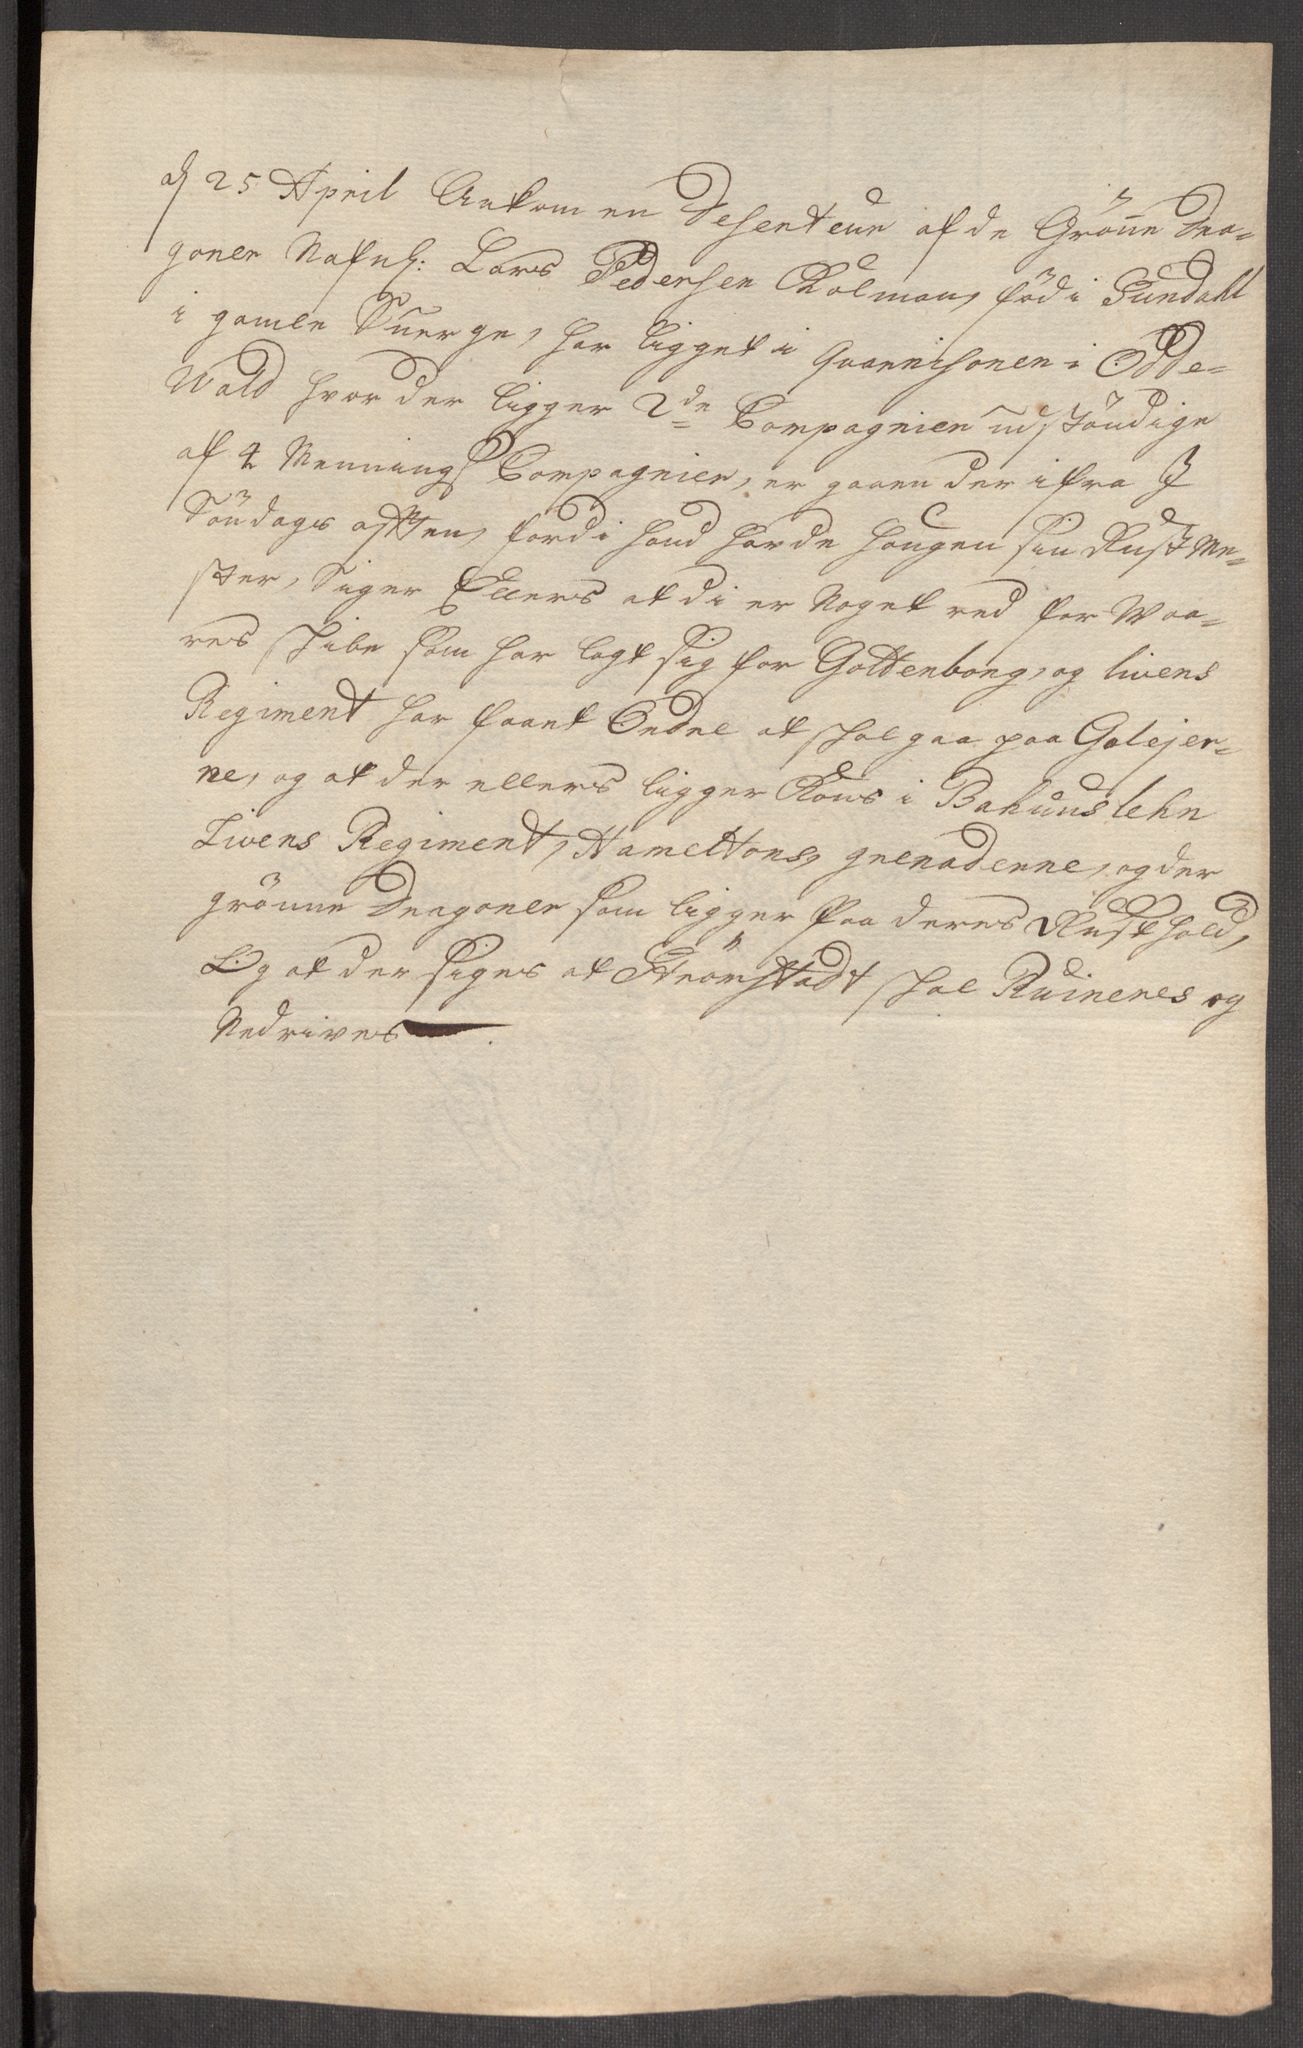 d 25 April Ankom en Deserteur af de Grönne Dra-
goner Nafnl: Lars Pedersen Kolman, föd i Sundahl
i gamle Sverge, har ligget i Guarnisonen i Odde-
Wald hvor der ligger 2de Compagnier udstöndige
af 4 Mennings Compagnier, er gaaen der ifra I
Söndags afften, fordi hand hafde hougen sin Rust Me-
ster, Siger Ellers at di er Noget red for Waa-
res skibe som har lagt sig for Gottenborg, og livens
Regiment har faaet Ordre at skal gaa paa Galejer-
ne, og at der ellers ligger i Bahuus lehn
Livens Regiment, Hameltons, grenaderne, og der
grönne Dragoner som ligger paa deres Rusthold,
Og at der siges at Strömstadt skal Ruineres og
Nedrives